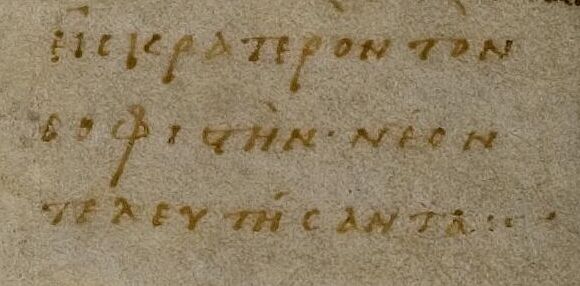 εἰς κρατερὸν τὸν
σοφιστὴν· νέον
τελευτήσαντα: